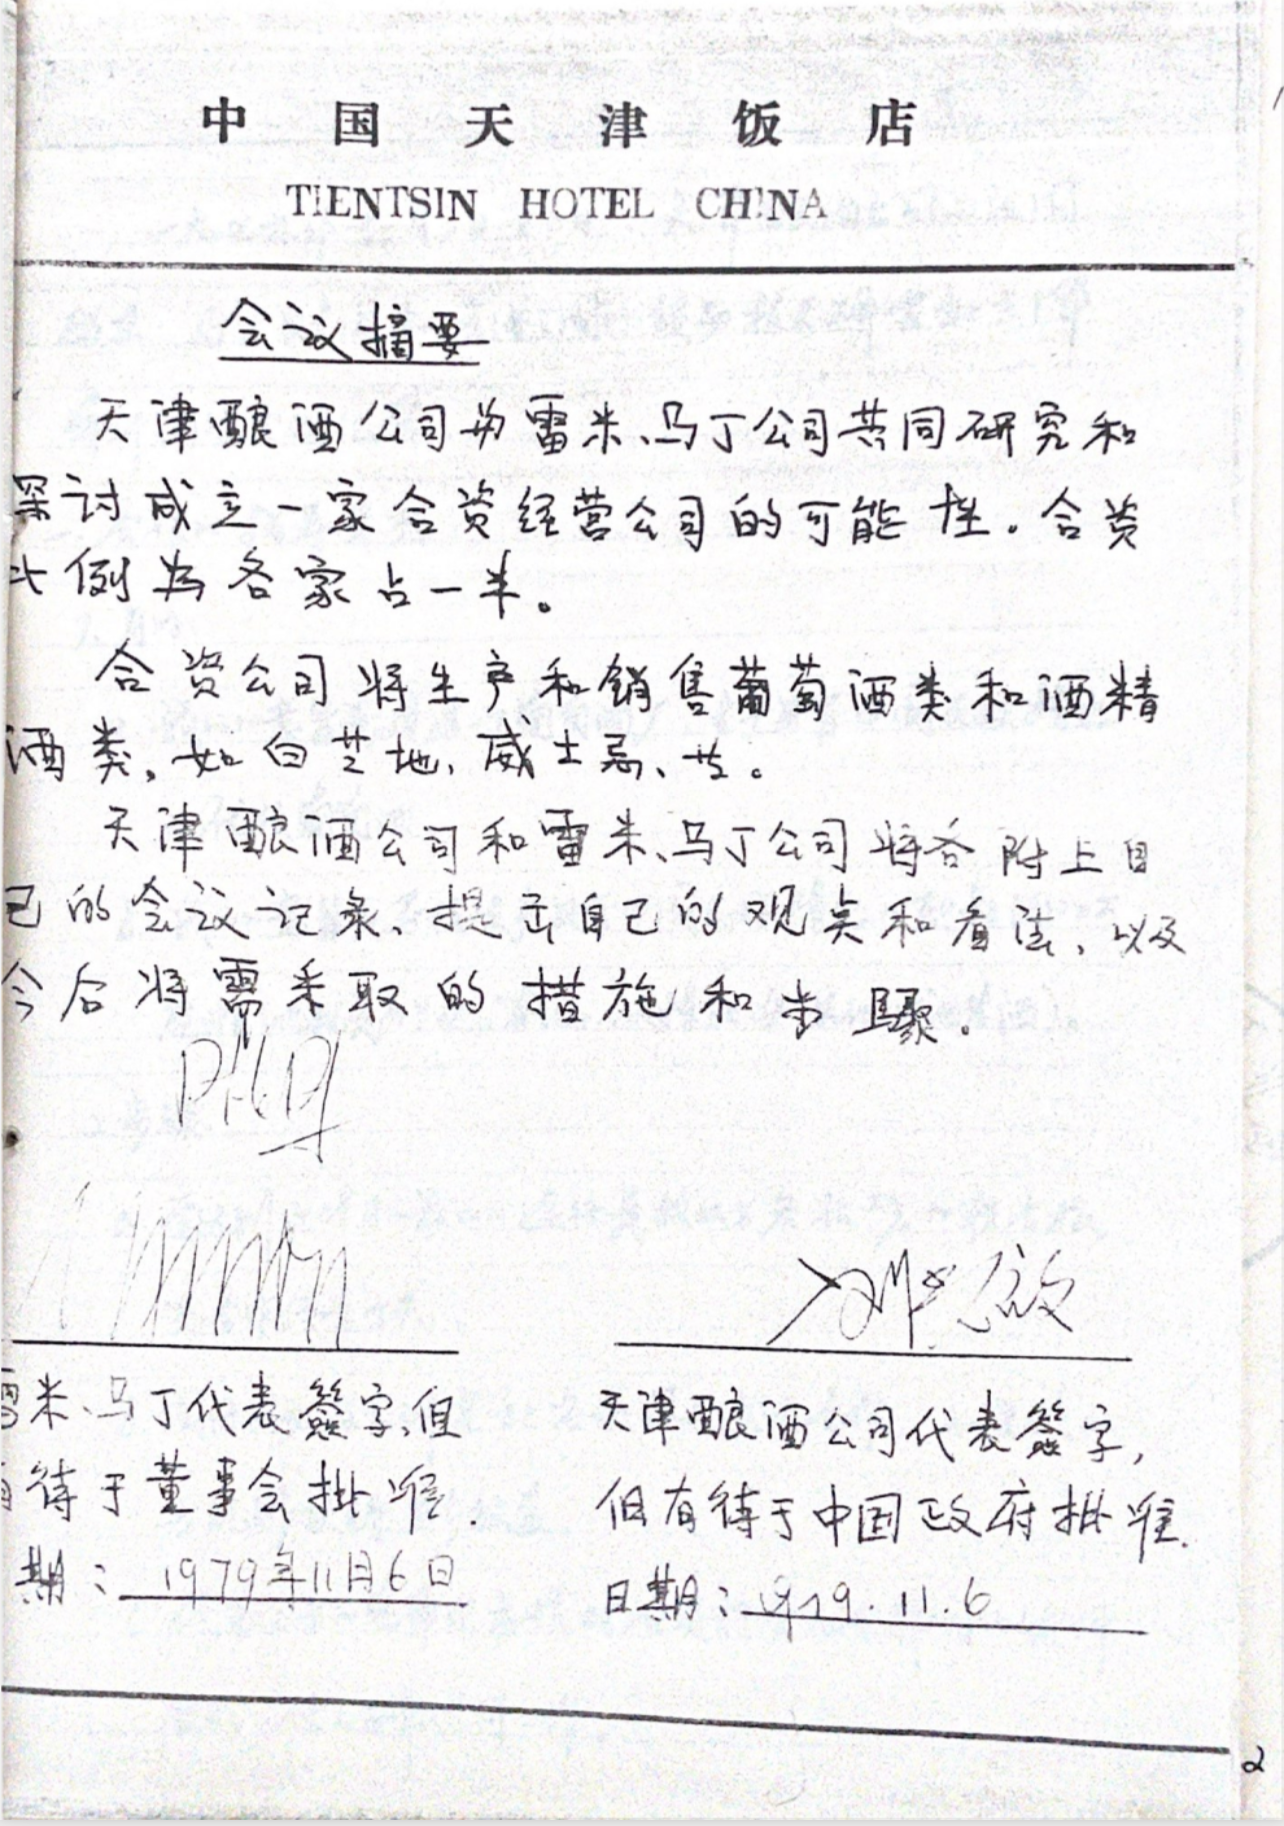 中国天津饭店
TIENTSIN HOTEL CHINA
会议摘要
天津酿酒公司为雷米、马丁公司共同研究和
探讨成立一家合资经营公司的可能性。合资
比例为各家占一半。
合资公司将生产和销售葡萄酒类和酒精
酒类,如白芝地、威士忌、艹。
天津酿酒公司和雷米、马丁公司将各附上自
己的会议记录、提出自己的观点和看法,以及
今后将需采取的措施和步骤.
雷米、马丁代表签字,但 天津酿酒公司代表签字,
有待于董事会批准. 但有待于中国政府批准.
期:1979年11月6日 日期:1979.11.6
2